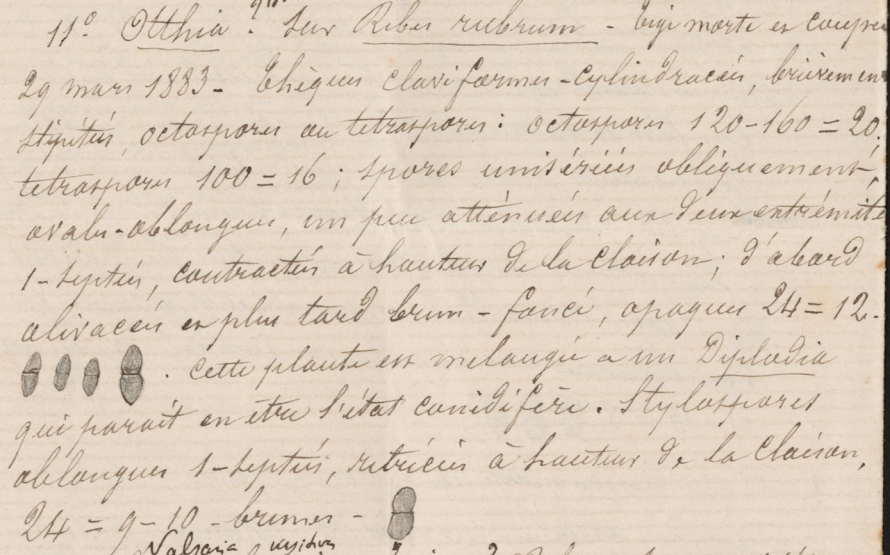 11º Otthia ? Sur Ribes rubrum - Tige morte et coupée
29 mars 1883 - Thèques claviformes-cylindracées, brièvement
stipitées, octospores ou tetraspores : octospores 120-160 = 20.
tetraspores 100 = 16 ; spores unisériées obliquement,
ovales-oblongues, un peu atténuées aux deux extrémités
1-septées, contractées à hauteur de la cloison ; d'abord
olivacées et plus tard brun-foncé, opaques 24 = 12.
. Cette plante est melangée a un Diplodia
qui parait en etre l'état conidifère. Stylospores
oblongues 1-septées, rétrécies à hauteur de la cloison,
24 = 9-10 - brunes -
Valsaria